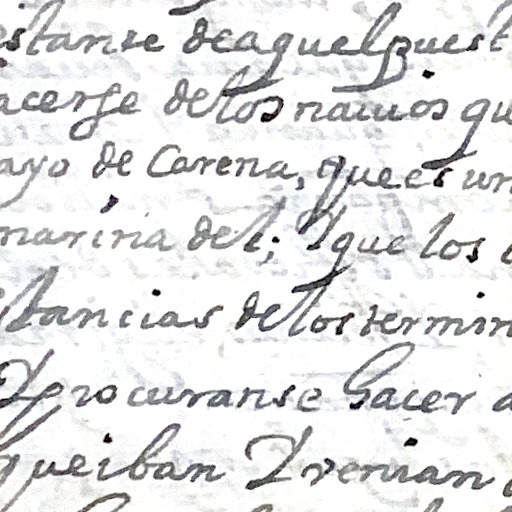 istanse deaquel puest
acerse delos nauios qu
ayo de Carena, que es un
marina del; Y que los
stancias delos termin
Y procuranse hacer a
que iban Y venian